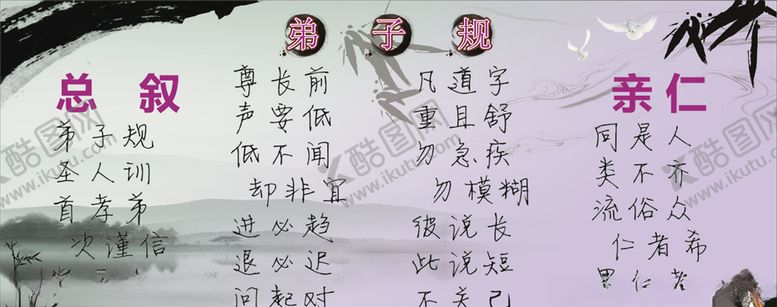 弟子规
总叙
弟子规
圣人训
首孝弟
次谨信
尊长前
声要低
低不闻
却非宜
进必趋
退必迟
问起对
凡道字
重且舒
勿急疾
勿模糊
彼说长
此说短
不关己
亲仁
同是人
类不齐
流俗众
仁者希
果仁者
酷图网
www.ikutu.com
酷图网
www.ikutu.com
酷图网
www.ikutu.com